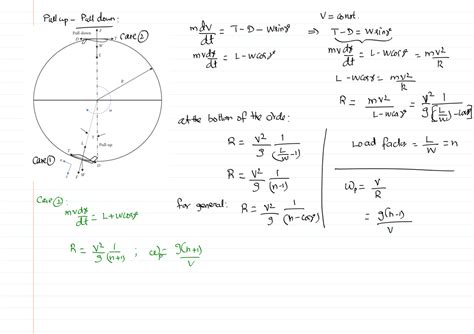 Pull up - Pull down:
Pull down
Case ②
Pull up
Case ①
m dV/dt = T - D - W sinγ
mV dγ/dt = L - W cosγ
V = const.
⇒ T - D = W sinγ
mV dγ/dt = L - W cosγ = mV²/R
L - W cosγ = mV²/R
R = mV²/(L - W cosγ) = V²/g 1/((L/W) - cosγ)
at the bottom of the circle:
R = V²/g 1/(L/W - 1)
R = V²/g 1/(n-1)
for general: R = V²/g 1/(n - cosγ)
Load factor = L/W = n
ω = V/R
= g(n-1)/V
Case ②:
mV dγ/dt = L + W cosγ
R = V²/g 1/(n+1) ; ω = g(n+1)/V